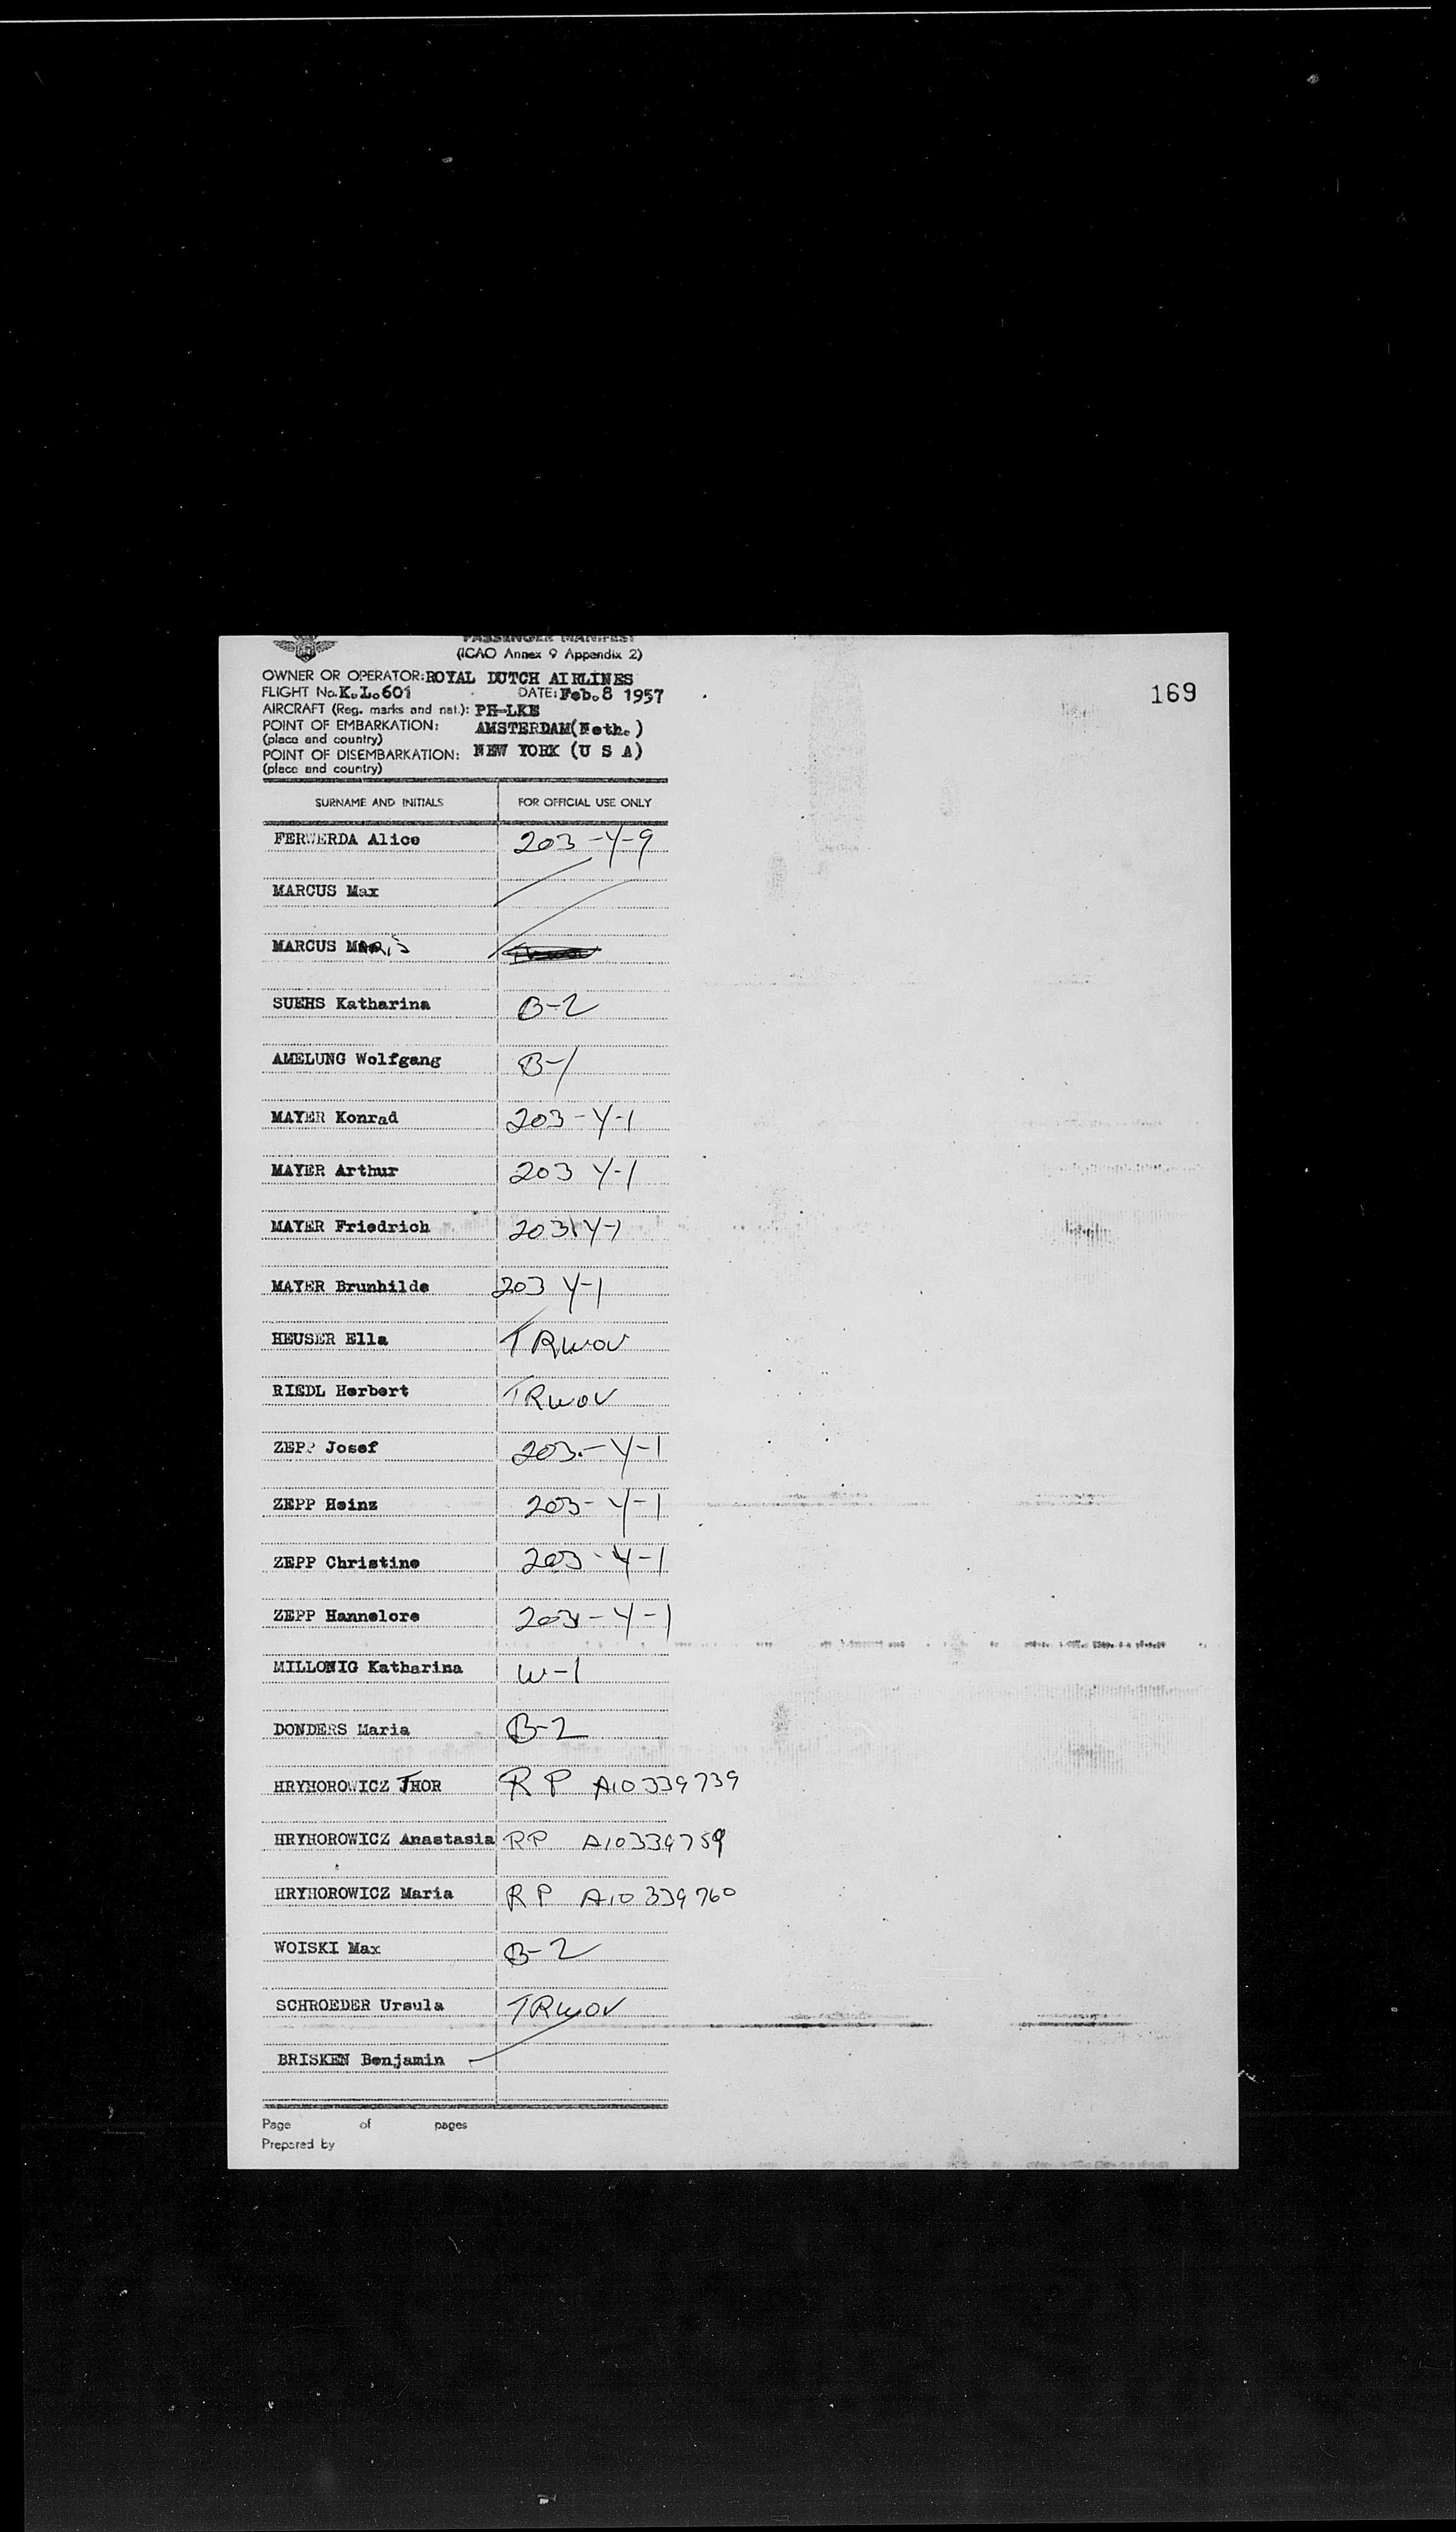 PASSENGER MANIFEST
(ICAO Annex 9 Appendix 2)
OWNER OR OPERATOR: ROYAL DUTCH AIRLINES
FLIGHT No. K.L.601 DATE: Feb. 8 1957
169
AIRCRAFT (Reg. marks and nat.): PH-LKE
POINT OF EMBARKATION: AMSTERDAM(Neth.)
(place and country)
POINT OF DISEMBARKATION: NEW YORK (U S A)
(place and country)
SURNAME AND INITIALS FOR OFFICIAL USE ONLY
FERWERDA Alice 203-Y-9
MARCUS Max
MARCUS
SUEHS Katharina B-2
AMELUNG Wolfgang B-1
MAYER Konrad 203-Y-1
MAYER Arthur 203 Y-1
MAYER Friedrich 203 Y-1
MAYER Brunhilde 203 Y-1
HEUSER Ella TRWOV
RIEDL Herbert TRWOV
ZEPP Josef 203-Y-1
ZEPP Heinz 203-Y-1
ZEPP Christine 203-Y-1
ZEPP Hannelore 203-Y-1
MILLONIG Katharina W-1
DONDERS Maria B-2
HRYHOROWICZ IHOR RP A10339739
HRYHOROWICZ Anastasia RP A10339759
HRYHOROWICZ Maria RP A10339760
WOISKI Max B-2
SCHROEDER Ursula TRWOV
BRISKEN Benjamin
Page of pages
Prepared by